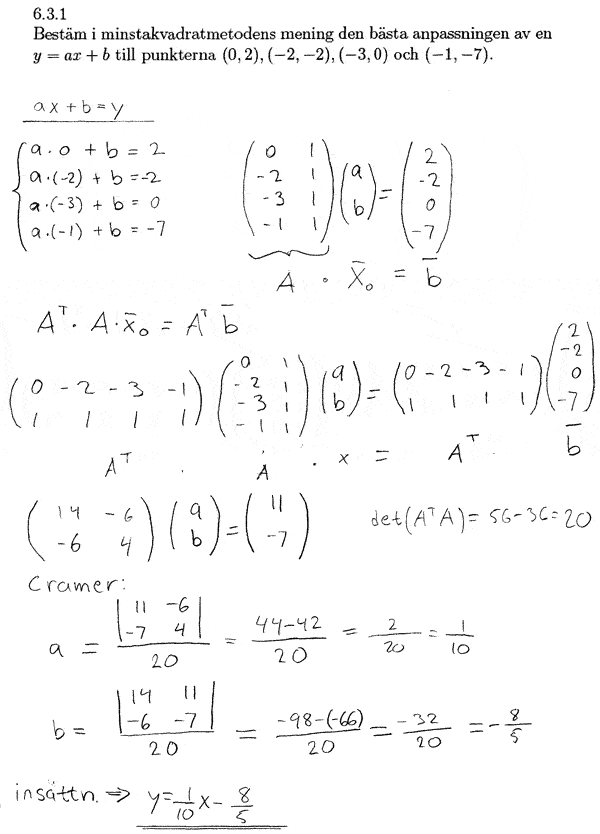 6.3.1
Bestäm i minstakvadratmetodens mening den bästa anpassningen av en
y = ax + b till punkterna (0, 2), (−2, −2), (−3, 0) och (−1, −7).
ax+b=y
a·0 + b = 2
a·(-2) + b = -2
a·(-3) + b = 0
a·(-1) + b = -7
( 0 1 ; -2 1 ; -3 1 ; -1 1 ) ( a ; b ) = ( 2 ; -2 ; 0 ; -7 )
A · x̄₀ = b̄
Aᵀ · A · x̄₀ = Aᵀ b̄
( 0 -2 -3 -1 ; 1 1 1 1 ) ( 0 1 ; -2 1 ; -3 1 ; -1 1 ) ( a ; b ) = ( 0 -2 -3 -1 ; 1 1 1 1 ) ( 2 ; -2 ; 0 ; -7 )
Aᵀ · A · x = Aᵀ · b̄
( 14 -6 ; -6 4 ) ( a ; b ) = ( 11 ; -7 ) det(AᵀA) = 56-36=20
Cramer:
a = | 11 -6 ; -7 4 | / 20 = 44-42 / 20 = 2/20 = 1/10
b = | 14 11 ; -6 -7 | / 20 = -98-(-66) / 20 = -32/20 = -8/5
insättn. ⇒ y = 1/10 x - 8/5